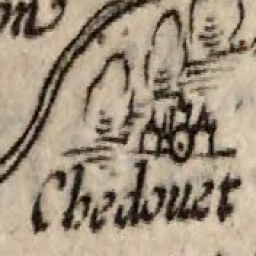 on
Chedouet